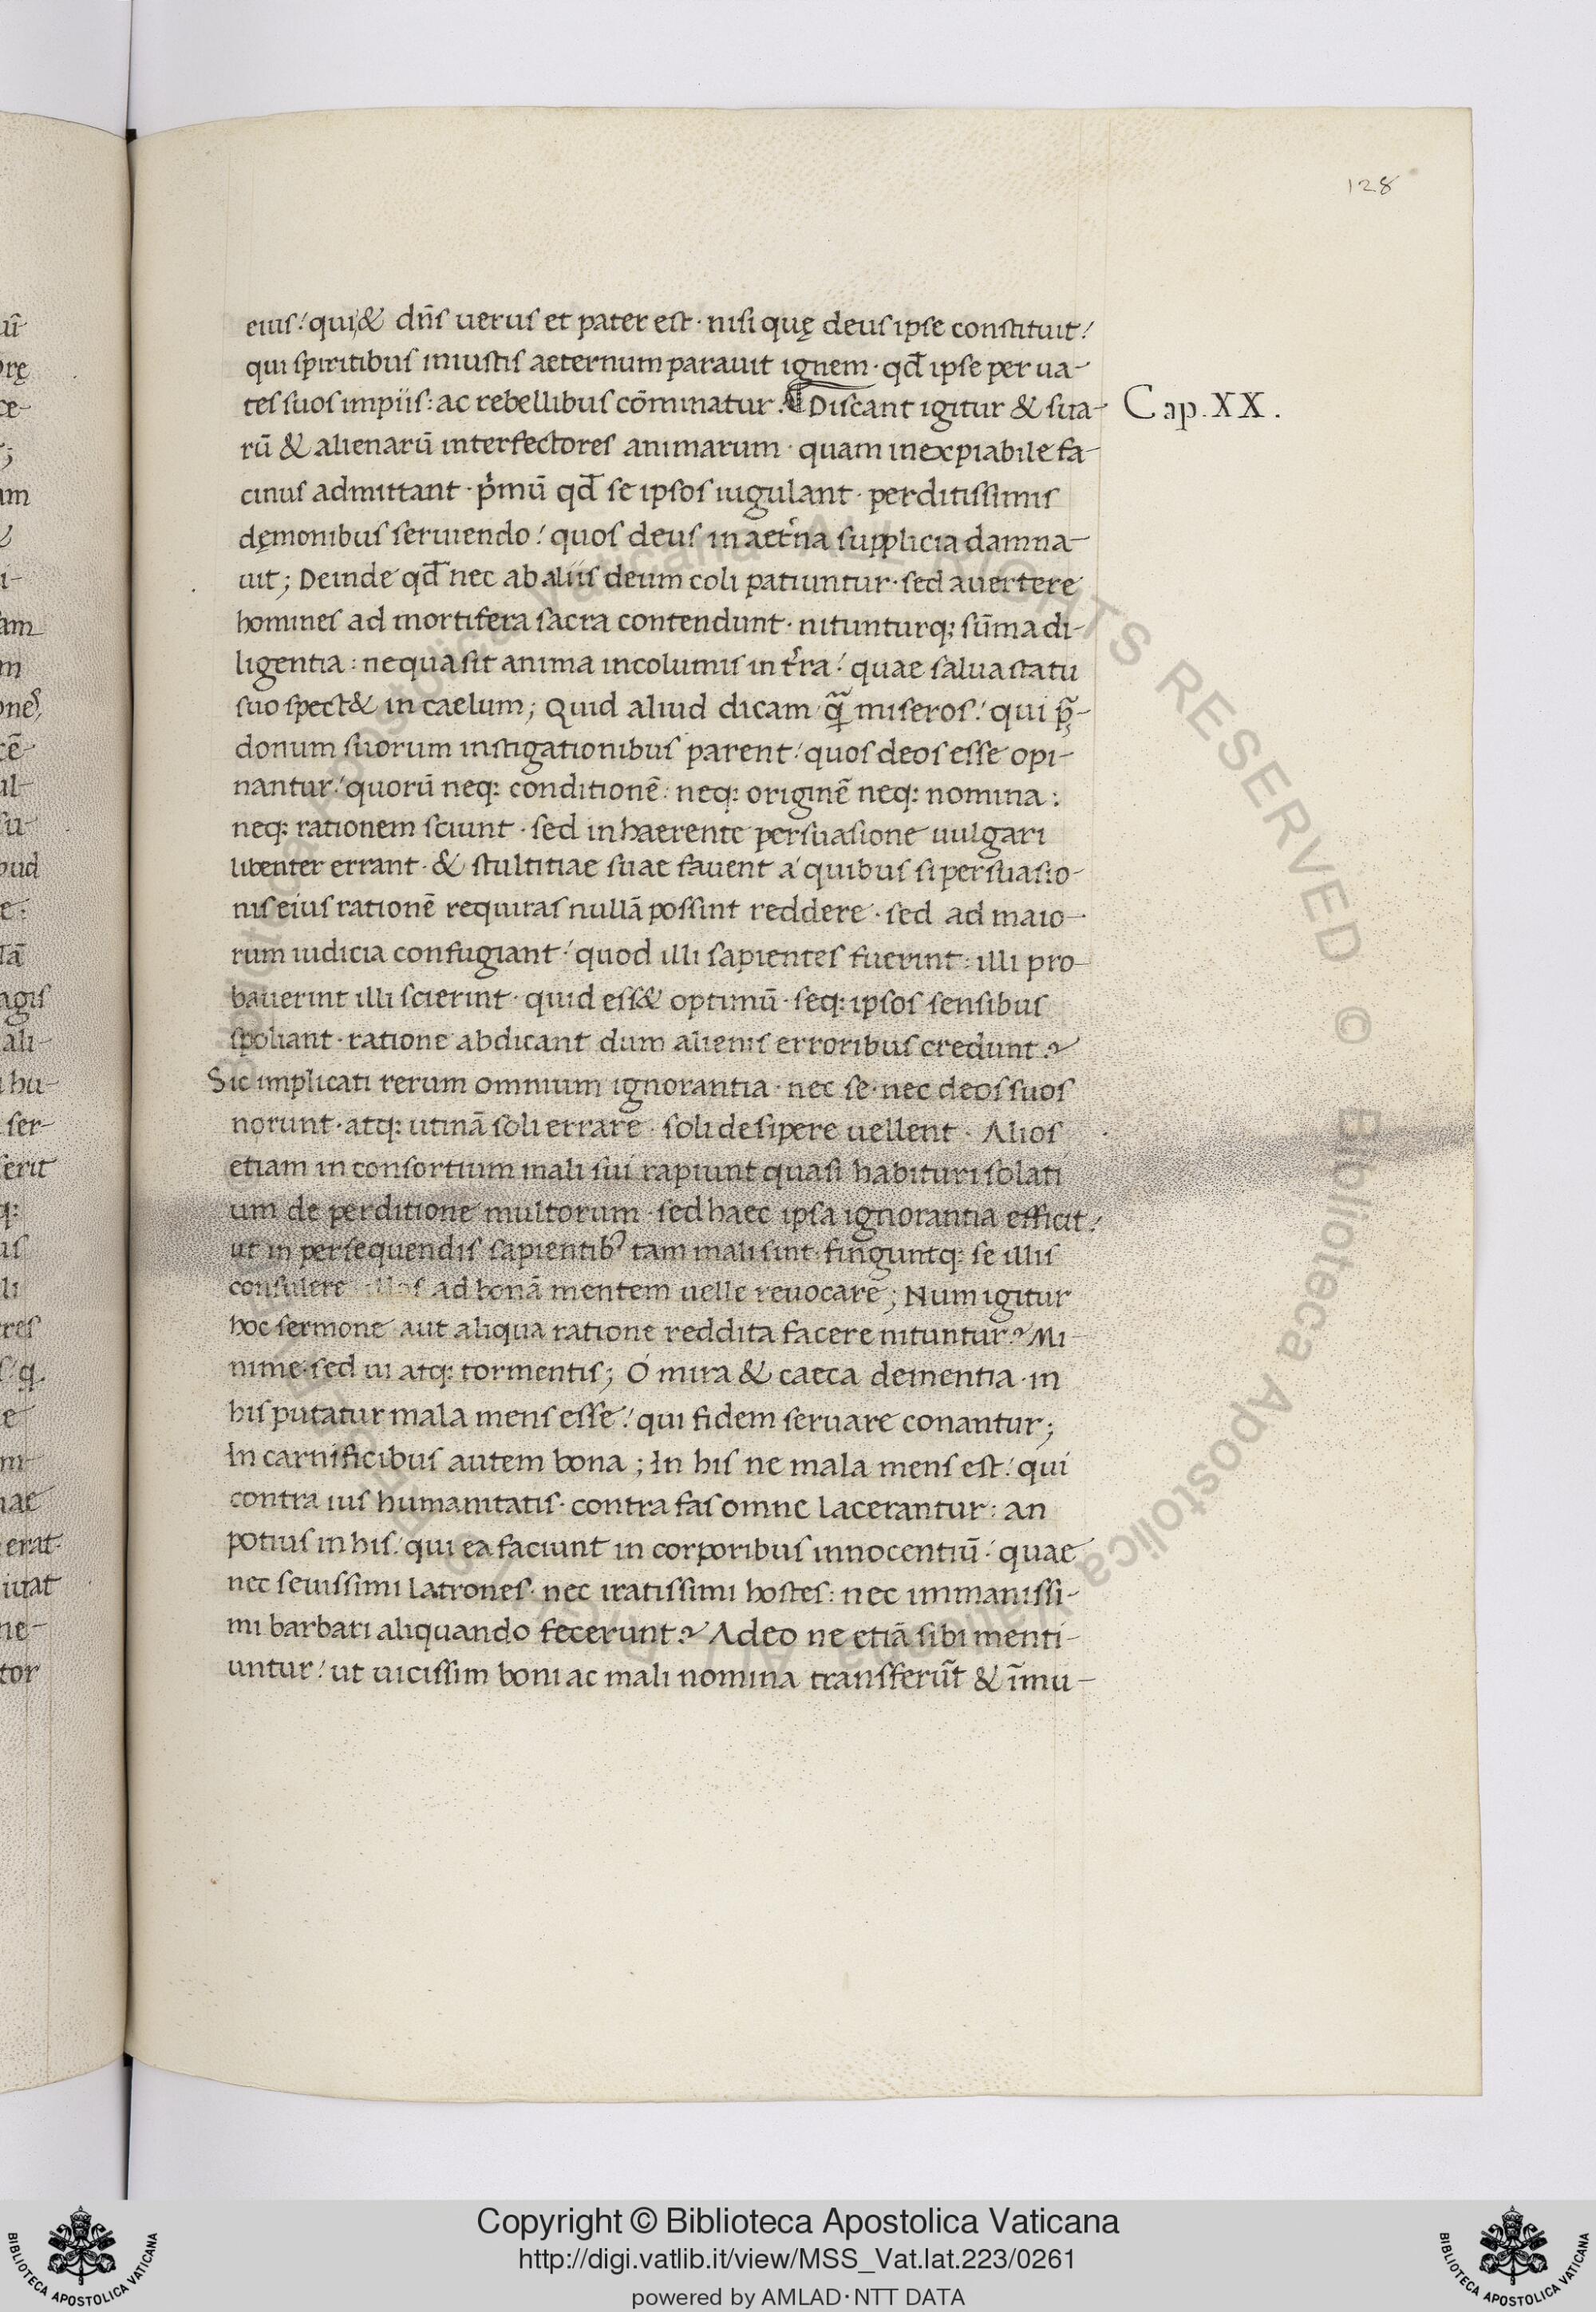 128
eius: qui & dn̄s uerus et pater est · nisi quę deus ipse constituit:
qui spiritibus iniustis aeternum parauit ignem · qd̄ ipse per ua-
tes suos impiis: ac rebellibus cōminatur. ¶ Discant igitur & sua- Cap. XX.
rū & alienarū interfectores animarum · quam inexpiabile fa-
cinus admittant · pͥmū qd̄ se ipsos iugulant · perditissimis
dęmonibus seruiendo: quos deus in aet̉na supplicia damna-
uit; Deinde qd̄ nec ab aliis deum coli patiuntur · sed auertere
homines ad mortifera sacra contendunt · nitunturq; sūma di-
ligentia: nequa sit anima incolumis in t̉ra: quae salua statu
suo spect& in caelum; Quid aliud dicam q̄ miseros: qui p̨̄-
donum suorum instigationibus parent: quos deos esse opi-
nantur: quorū neq; conditionē: neq; originē neq; nomina:
neq; rationem sciunt · sed inhaerente persuasione uulgari
libenter errant · & stultitiae suae fauent a quibus si persuasio-
nis eius rationē requiras nullā possint reddere · sed ad maio-
rum iudicia confugiant: quod illi sapientes fuerint: illi pro-
bauerint illi scierint · quid ess& optimū · seq; ipsos sensibus
spoliant · ratione abdicant dum alienis erroribus credunt?
Sic implicati rerum omnium ignorantia · nec se · nec deos suos
norunt · atq; utinā soli errare · soli desipere uellent · Alios
etiam in consortium mali sui rapiunt quasi habituri solati
um de perditione multorum · sed haec ipsa ignorantia efficit:
ut in persequendis sapientibꝰ tam mali sint · finguntq; se illis
consulere illos ad bonā mentem uelle reuocare; Num igitur
hoc sermone aut aliqua ratione reddita facere nituntur? Mi-
nime · sed ui atq; tormentis; O mira & caeca dementia · in
his putatur mala mens esse: qui fidem seruare conantur;
In carnificibus autem bona; In his ne mala mens est: qui
contra ius humanitatis · contra fas omne lacerantur: an
potius in his: qui ea faciunt in corporibus innocentiū: quae
nec seuissimi latrones · nec iratissimi hostes: nec immanissi-
mi barbari aliquando fecerunt? Adeo ne etiā sibi menti-
untur: ut uicissim boni ac mali nomina transferūt & īmu-
Copyright © Biblioteca Apostolica Vaticana
http://digi.vatlib.it/view/MSS_Vat.lat.223/0261
powered by AMLAD·NTT DATA